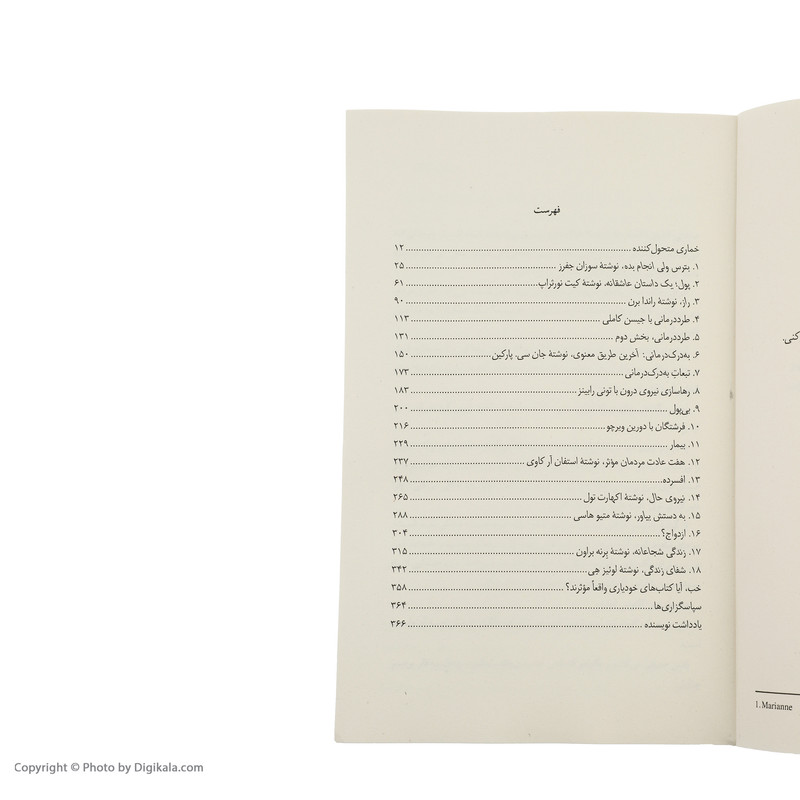 فهرست
خماری متحول‌کننده ........ ۱۲
۱. بترس ولی انجام بده، نوشتهٔ سوزان جفرز ........ ۲۵
۲. پول؛ یک داستان عاشقانه، نوشتهٔ کیت نورثراپ ........ ۶۱
۳. راز، نوشتهٔ راندا برن ........ ۹۰
۴. طرددرمانی با جیسن کاملی ........ ۱۱۳
۵. طرددرمانی، بخش دوم ........ ۱۳۱
۶. به‌درک‌درمانی: آخرین طریق معنوی، نوشتهٔ جان سی. پارکین ........ ۱۵۰
۷. تبعاتِ به‌درک‌درمانی ........ ۱۷۳
۸. رهاسازی نیروی درون با تونی رابینز ........ ۱۸۳
۹. بی‌پول ........ ۲۰۰
۱۰. فرشتگان با دورین ویرچو ........ ۲۱۶
۱۱. بیمار ........ ۲۲۹
۱۲. هفت عادت مردمان مؤثر، نوشتهٔ استفان آر کاوی ........ ۲۳۷
۱۳. افسرده ........ ۲۴۸
۱۴. نیروی حال، نوشتهٔ اکهارت تول ........ ۲۶۵
۱۵. به دستش بیاور، نوشتهٔ متیو هاسی ........ ۲۸۸
۱۶. ازدواج؟ ........ ۳۰۴
۱۷. زندگی شجاعانه، نوشتهٔ برنه براون ........ ۳۱۵
۱۸. شفای زندگی، نوشتهٔ لوئیز هِی ........ ۳۴۲
خب، آیا کتاب‌های خودیاری واقعاً مؤثرند؟ ........ ۳۵۸
سپاسگزاری‌ها ........ ۳۶۴
یادداشت نویسنده ........ ۳۶۶
کنی.
1. Marianne
Copyright © Photo by Digikala.com